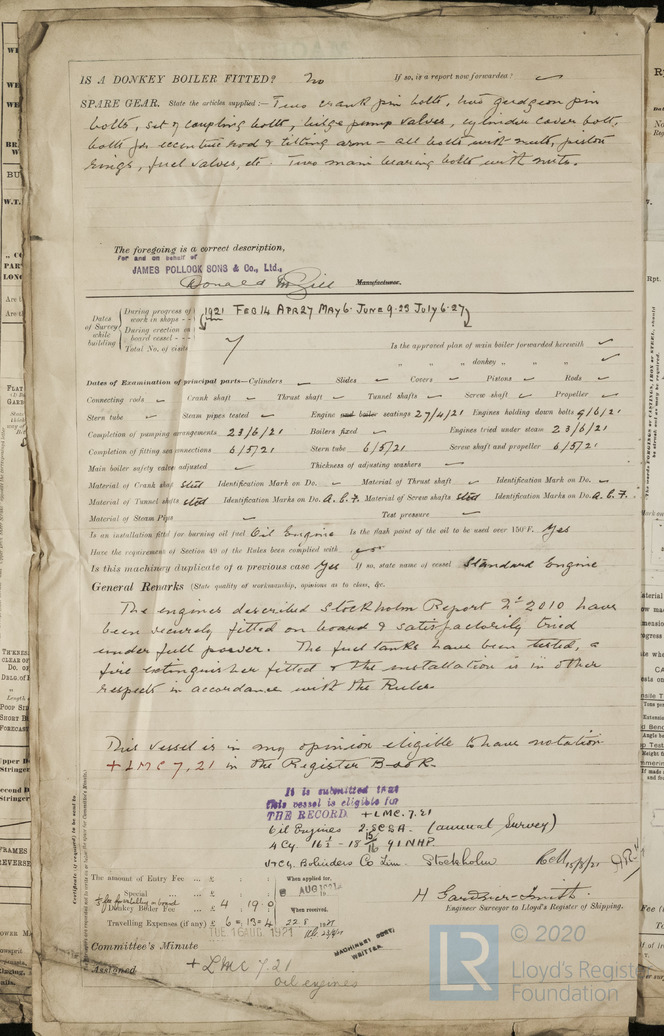 IS A DONKEY BOILER FITTED? No If so, is a report now forwarded? ✓
SPARE GEAR. State the articles supplied:— Two crank pin bolts, two gudgeon pin
bolts, set of coupling bolts, bilge pump valves, cylinder cover bolts,
bolts for eccentric rod & tilting arm – all bolts with nuts, piston
rings, fuel valves, etc. Two main bearing bolts with nuts.
The foregoing is a correct description,
For and on behalf of
JAMES POLLOCK SONS & Co., Ltd.,
Donald Manufacturer.
Dates of Survey while building
During progress of work in shops - - 1921 FEB 14 APR 27 MAY 6. JUNE 9.23 JULY 6.27
During erection on board vessel - - -
Total No. of visits 7 Is the approved plan of main boiler forwarded herewith ✓
" " " donkey " " " ✓
Dates of Examination of principal parts—Cylinders ✓ Slides ✓ Covers ✓ Pistons ✓ Rods ✓
Connecting rods ✓ Crank shaft ✓ Thrust shaft ✓ Tunnel shafts ✓ Screw shaft ✓ Propeller ✓
Stern tube ✓ Steam pipes tested ✓ Engine and boiler seatings 27/4/21 Engines holding down bolts 9/6/21
Completion of pumping arrangements 23/6/21 Boilers fixed ✓ Engines tried under steam 23/6/21
Completion of fitting sea connections 6/5/21 Stern tube 6/5/21 Screw shaft and propeller 6/5/21
Main boiler safety valve adjusted ✓ Thickness of adjusting washers ✓
Material of Crank shaft steel Identification Mark on Do. ✓ Material of Thrust shaft ✓ Identification Mark on Do. ✓
Material of Tunnel shafts steel Identification Marks on Do. A.C.F. Material of Screw shafts steel Identification Marks on Do. A.C.F.
Material of Steam Pipes ✓ Test pressure ✓
Is an installation fitted for burning oil fuel Oil Engine Is the flash point of the oil to be used over 150°F. Yes
Have the requirements of Section 49 of the Rules been complied with yes
Is this machinery duplicate of a previous case Yes If so, state name of vessel Standard Engine
General Remarks (State quality of workmanship, opinions as to class, &c.
The engines described Stockholm Report No 2010 have
been securely fitted on board & satisfactorily tried
under full power. The fuel tanks have been tested, a
fire extinguisher fitted & the installation is in other
respects in accordance with the Rules.
This vessel is in my opinion eligible to have notation
+LMC 7,21 in the Register Book.
It is submitted that
this vessel is eligible for
THE RECORD. +LMC. 7.21
Oil Engines 2 SCSA. (annual Survey)
4 Cy. 16½ - 18 91 NHP.
Bolinders Co Lim. Stockholm
The amount of Entry Fee ... £ : : When applied for,
Special ... £ : : AUG 1921
Donkey Boiler Fee ... £ 4 : 19 : 0 When received,
Travelling Expenses (if any) £ 6 = 13 = 4 22.8.1921
H Gardner-Smith
Engineer Surveyor to Lloyd's Register of Shipping.
TUE 16 AUG 1921
Committee's Minute
MACHINERY CERT. WRITTEN.
Assigned +LMC 7.21
Oil engines
LR © 2020
Lloyd's Register
Foundation